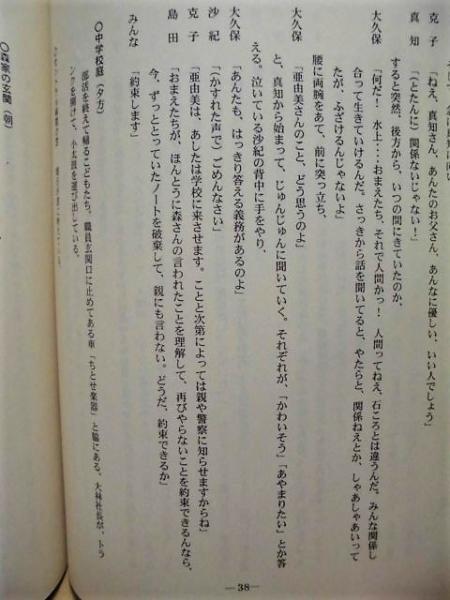 克子　「ねえ、真知さん、あんたのお父さん、あんなに優しい、いい人でしょう」
真知　「(とたんに)関係ないじゃない！」
すると突然、後方から、いつの間にきていたのか、
大久保　「何だ！　水上・・・おまえたち、それで人間かっ！　人間ってねえ、石ころとは違うんだ。みんな関係し
合って生きていけるんだ。さっきから話を聞いてると、やたらと、関係ねえとか、しゃあしゃあいって
たが、ふざけるんじゃないよ」
腰に両腕をあて、前に突っ立ち、
大久保　「亜由美さんのこと、どう思うのよ」
と、真知から始まって、じゅんじゅんに聞いていく。それぞれが、「かわいそう」「あやまりたい」とか答
える。泣いている沙紀の背中に手をやり、
大久保　「あんたも、はっきり答える義務があるのよ」
沙紀　「(かすれた声で)ごめんなさい」
克子　「亜由美は、あしたは学校に来させます。ことと次第によっては親や警察に知らせますからね」
島田　「おまえたちが、ほんとうに森さんの言われたことを理解して、再びやらないことを約束できるんなら、
今、ずっととっていたノートを破棄して、親にも言わない。どうだ、約束できるか」
みんな　「約束します」
〇中学校庭（夕方）
部活を終えて帰るこどもたち。職員玄関口に止めてある車「ちとせ楽器」と脇にある。大林社長が、トラ
ンクを開けて、小太鼓を運び出している。
〇森家の玄関（朝）
—38—